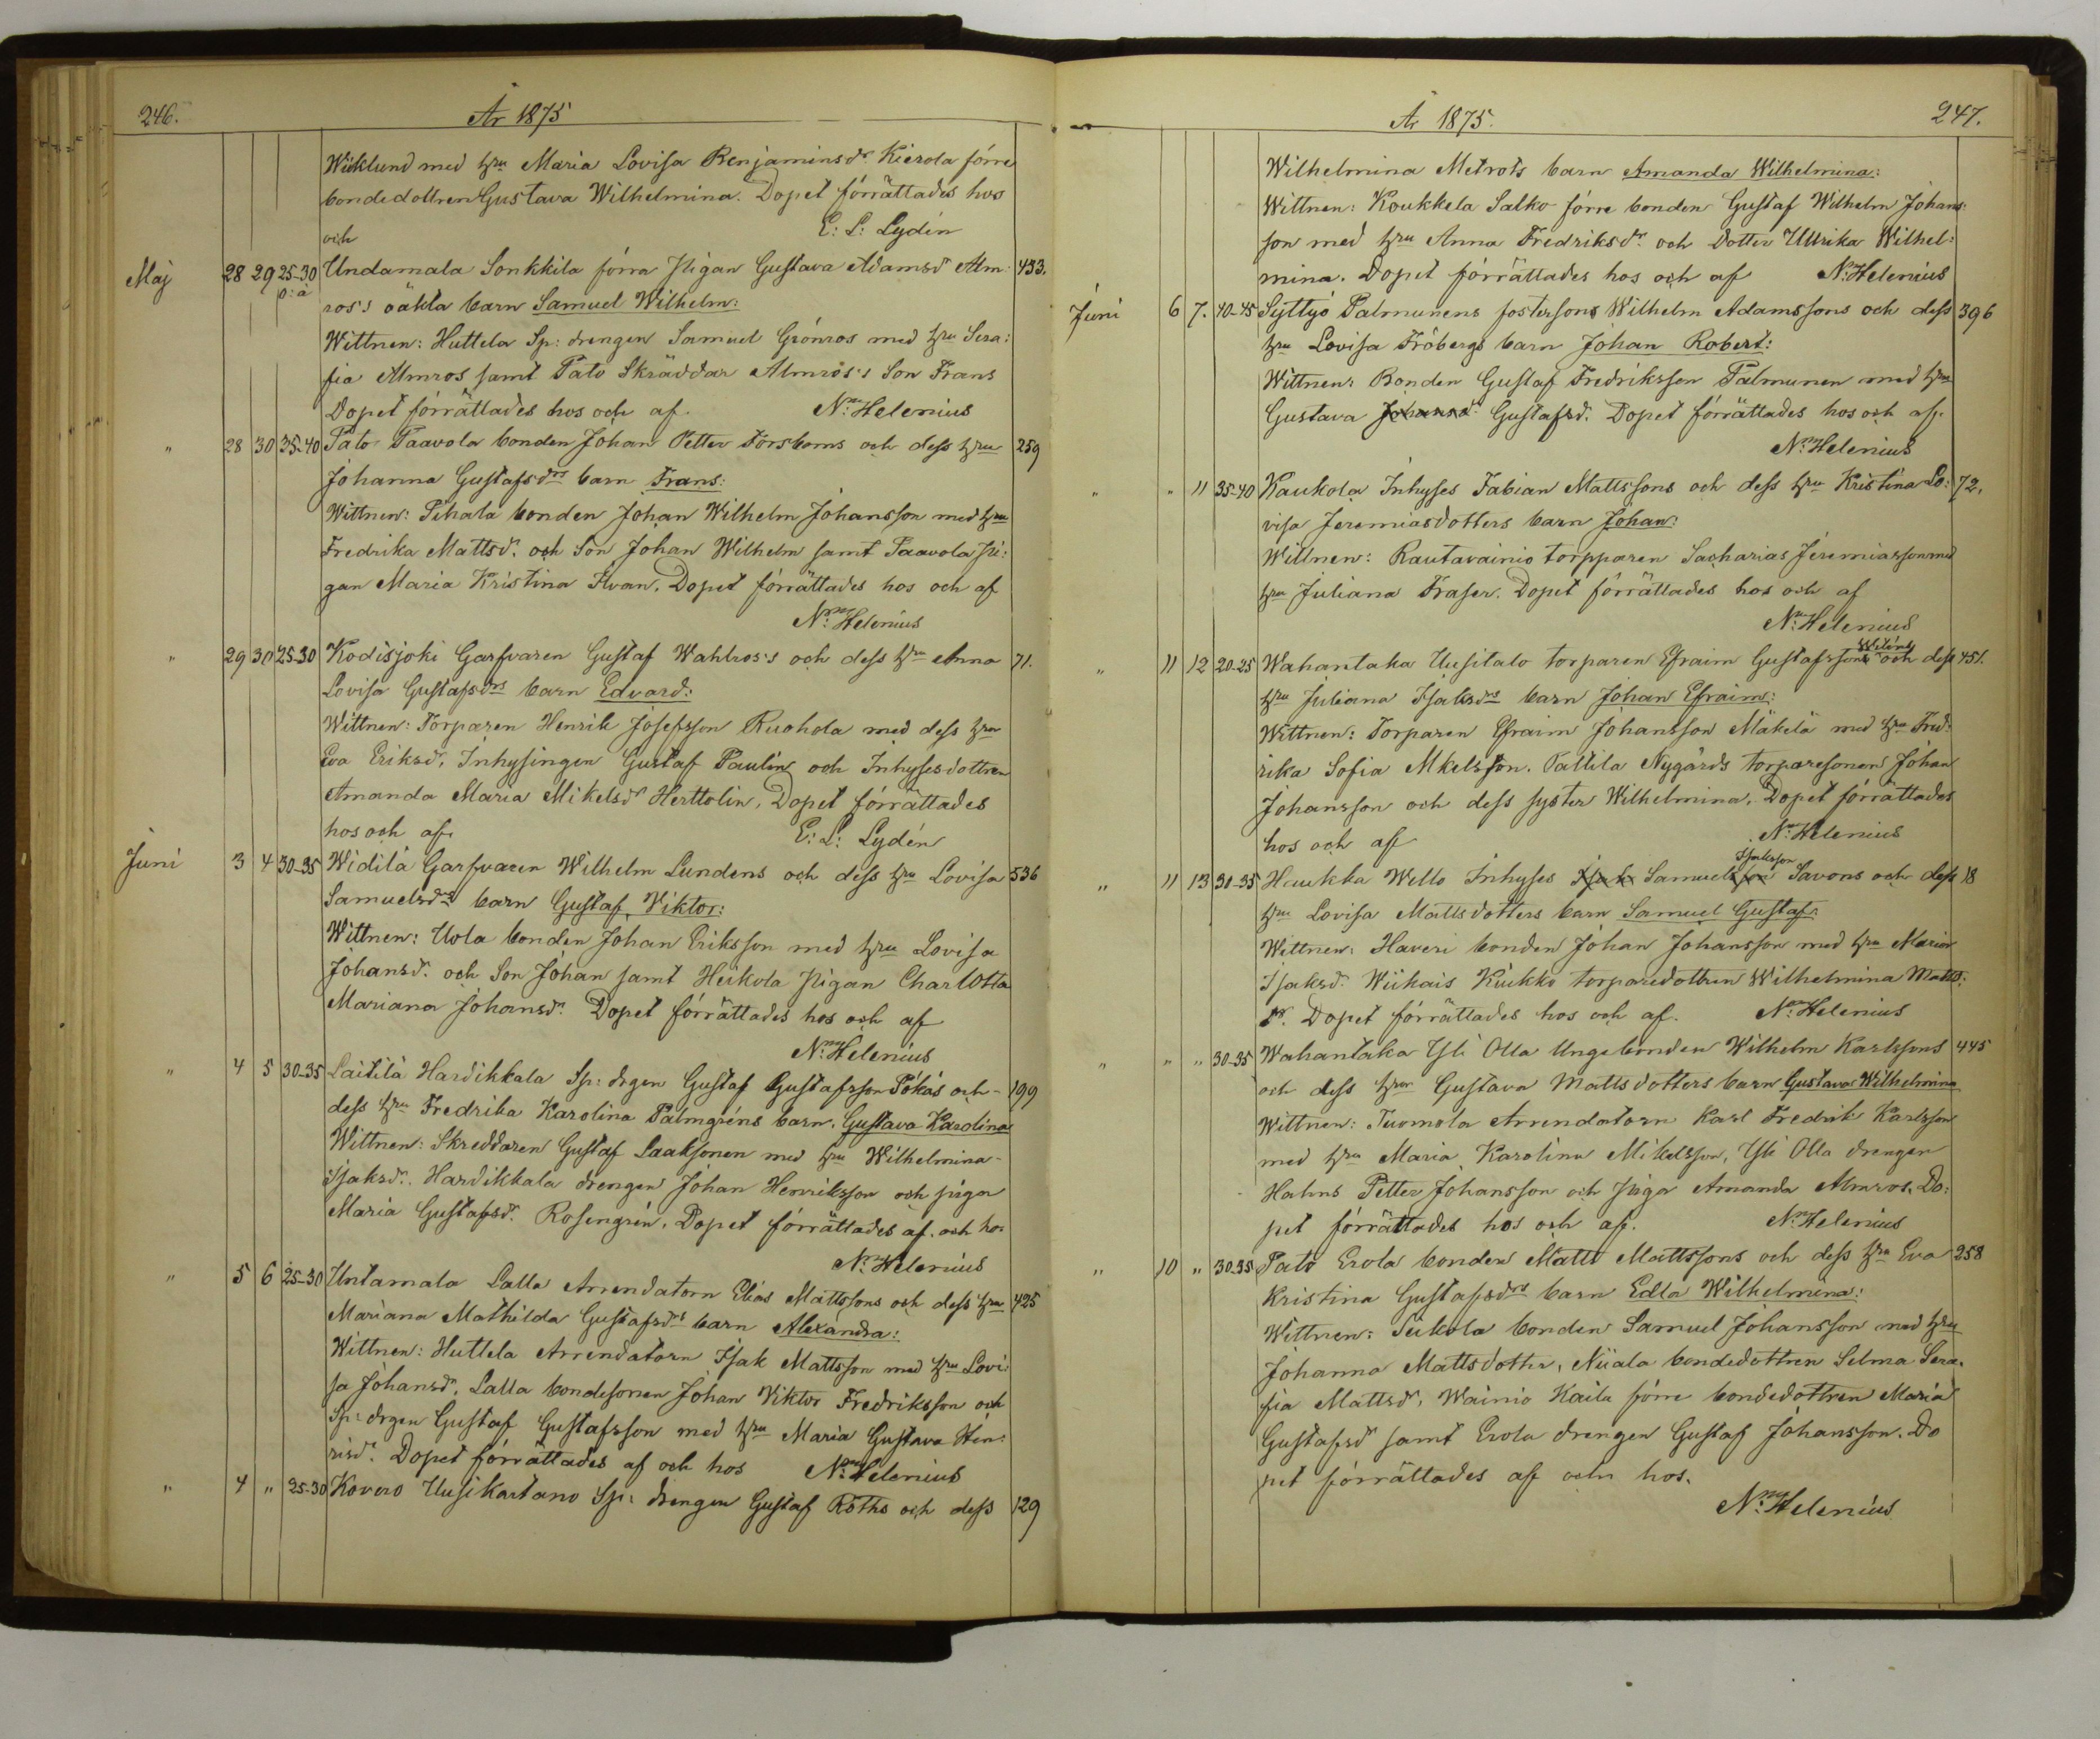 246.
År 1875
Wicklund med hru Maria Lovisa Benjaminsdr Kierola förre
bondedottren Gustava Wilhelmina. Dopet förrättades hos
och E: L: Lydén
Maj 28 29 25-30 Undamala Sonkkila förra Pigan Gustava Adamsdr Alm: 433.
o: ä ros's oäkta barn Samuel Wilhelm:
Wittnen: Huttela Sp: drengen Samuel Grönros med hru Sera:
fia Almros samt Pato Skräddar Almros's Son Frans
Dopet förrättades hos och af. N: Helenius
" 28 30 35-40 Pato Paavola bonden Johan Petter Forsboms och dess hru 259
Johanna Gustafsdrs barn Frans:
Wittnen: Pihala bonden Johan Wilhelm Johansson med hru
Fredrika Mattsdr. och Son Johan Wilhelm samt Paavola Pi:
gan Maria Kristina Ilvan. Dopet förrättades hos och af
N: Helenius
" 29 30 25-30 Kodisjoki Garfvaren Gustaf Wahlros's och dess hru Anna 71.
Lovisa Gustafsdrs barn Edvard:
Wittnen: Torparen Henrik Josefsson Ruohola med dess hru
Eva Eriksdr, Inhysingen Gustaf Paulin och Inhysesdottren
Amanda Maria Mikelsdr Herttolin. Dopet förrättades
hos och af. E: L: Lydén
Juni 3 4 30-35 Widilä Garfvaren Wilhelm Lundens och dess hru Lovisa 536
Samuelsdrs barn Gustaf Viktor:
Wittnen: Uola bonden Johan Eriksson med hru Lovisa
Johansdr. och Son Johan samt Heikola Pigan CharlOtta
Mariana Johansdr. Dopet förrättades hos och af
N: Helenius
" 4 5 30-35 Laitila Hardikkala Sp: drgen Gustaf Gustafsson Pökäs och 199
dess hru Fredrika Karolina Palmgréns barn. Gustava Karolina
Wittnen: Skreddaren Gustaf Laaksonen med hru Wilhelmina
Isaksdr. Hardikkala drengen Johan Henriksson och piga
Maria Gustafsdr. Rosengrén. Dopet förrättades af och hos
N: Helenius
" 5 6 25-30 Untamala Lalla Arrendatorn Elias Mattssons och dess hru 425
Mariana Mathilda Gustafsdrs barn Alexandra:
Wittnen: Huttela Arrendatorn Isak Mattsson med hru Lovi:
sa Johansdr. Lalla bondesonen Johan Viktor Fredriksson och
Sp: drgen Gustaf Gustafsson med hru Maria Gustava Hen:
risdr. Dopet förrättades af och hos N: Helenius
" 4 " 25-30 Kovero Uusikartano Sp: drengen Gustaf Röths och dess 129
År 1875. 247.
Wilhelmina Metrots barn Amanda Wilhelmina:
Wittnen: Koukkela Salko förre bonden Gustaf Wilhelm Johans:
son med hru Anna Fredriksdr. och Dotter Ullrika Wilhel:
mina. Dopet förrättades hos och af N: Helenius
Juni 6 7. 40-45 Syttyö Palmunens fostersons Wilhelm Adamssons och dess 396
hru Lovisa Fröbergs barn Johan Robert:
Wittnen: Bonden Gustaf Fredriksson Palmunen med hru
Gustava Johansdr. Gustafsdr. Dopet förrättades hos och af.
N: Helenius
" " 11 35-40 Kaukola Inhyses Fabian Mattssons och dess hru Kristina Lo: 72.
visa Jeremiasdotters barn Johan:
Wittnen: Rautavainio torpparen Sacharias Jeremiasson med
hru Juliana Fraser. Dopet förrättades hos och af
N: Helenius
" 11 12 20-25 Wahantaka Uusitalo torparen Efraim Gustafssons Wiléns och dess 451.
hru Juliana Isaksdrs barn Johan Efraim:
Wittnen: Torparen Efraim Johansson Mäkelä med hru Fred:
rika Sofia Mkelsson. Palttila Nygårds torparesonen Johan
Johansson och dess syster Wilhelmina. Dopet förrättades
hos och af N: Helenius
" 11 13 30-35 Haukka Wello Inhyses Isak Samuelsson Isaksson Savons och dess 18
hru Lovisa Mattsdotters barn Samuel Gustaf:
Wittnen: Haveri bonden Johan Johansson med hru Maria
Isaksdr. Wiikais Kiukko torparedottren Wilhelmina Matts:
dr. Dopet förrättades hos och af. N: Helenius
" " " 30-35 Wahantaka Yli Olla Ungebonden Wilhelm Karlssons 445
och dess hru Gustava Mattsdotters barn Gustava Wilhelmina
Wittnen: Tuomola Arrendatorn Karl Fredrik Karlsson
med hru Maria Karolina Mikelsson, Yli Olla drengen
Hahns Petter Johansson och Piga Amanda Almros. Do:
pet förrättades hos och af. N: Helenius
" 10 " 30-35 Pato Erola bonden Matts Mattssons och dess hru Eva 258
Kristina Gustafsdrs barn Edla Wilhelmina:
Wittnen: Seikola bonden Samuel Johansson med hru
Johanna Mattsdotter, Niiala bondedottren Selma Sera:
fia Mattsdr, Wainio Kaila förre bondedottren Maria
Gustafsdr samt Erola drengen Gustaf Johansson. Do
pet förrättades af och hos.
N: Helenius